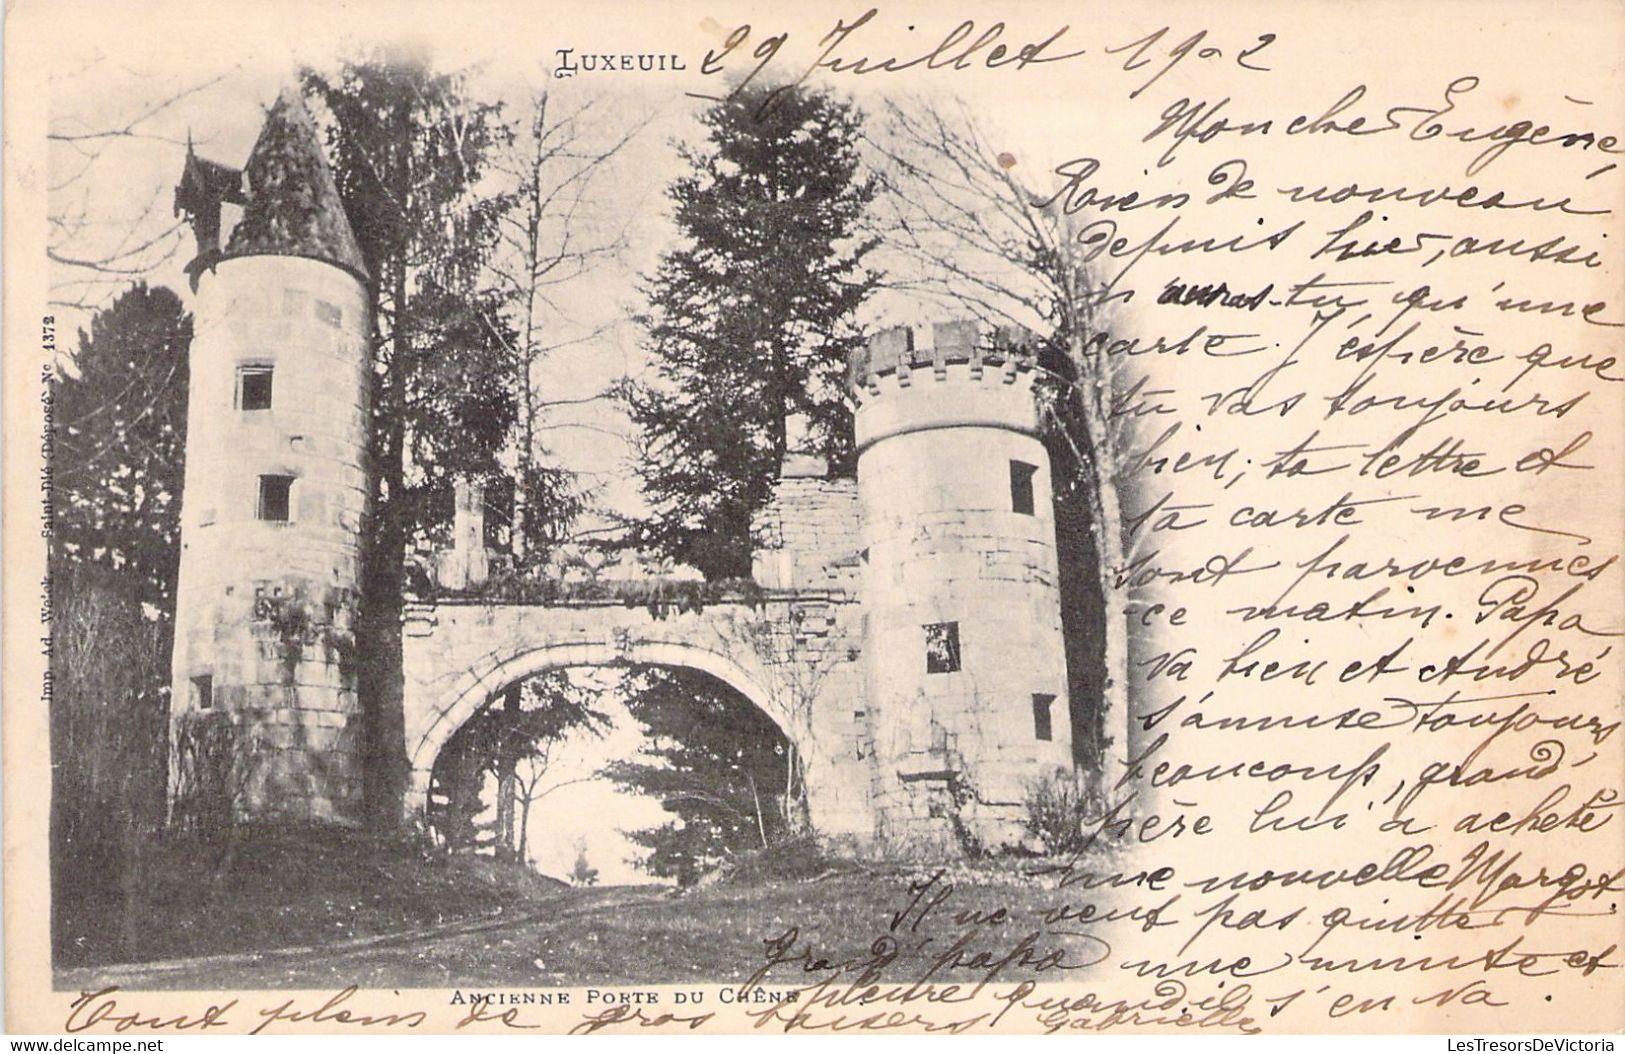 LUXEUIL 29 Juillet 1902
Mon cher Eugène,
Rien de nouveau
depuis hier, aussi
n'auras-tu qu'une
carte. J'espère que
tu vas toujours
bien; ta lettre et
ta carte me
sont parvenues
ce matin. Papa
va bien et André
s'amuse toujours
beaucoup, grand'
père lui a acheté
une nouvelle Margot.
Il ne veut pas quitter
grand'papa une minute et
pleure quand il s'en va.
Tout plein de gros baisers Gabrielle
ANCIENNE PORTE DU CHÊNE
Imp. Ad. Weick - Saint-Dié (Déposé) No 1372
LesTresorsDeVictoria